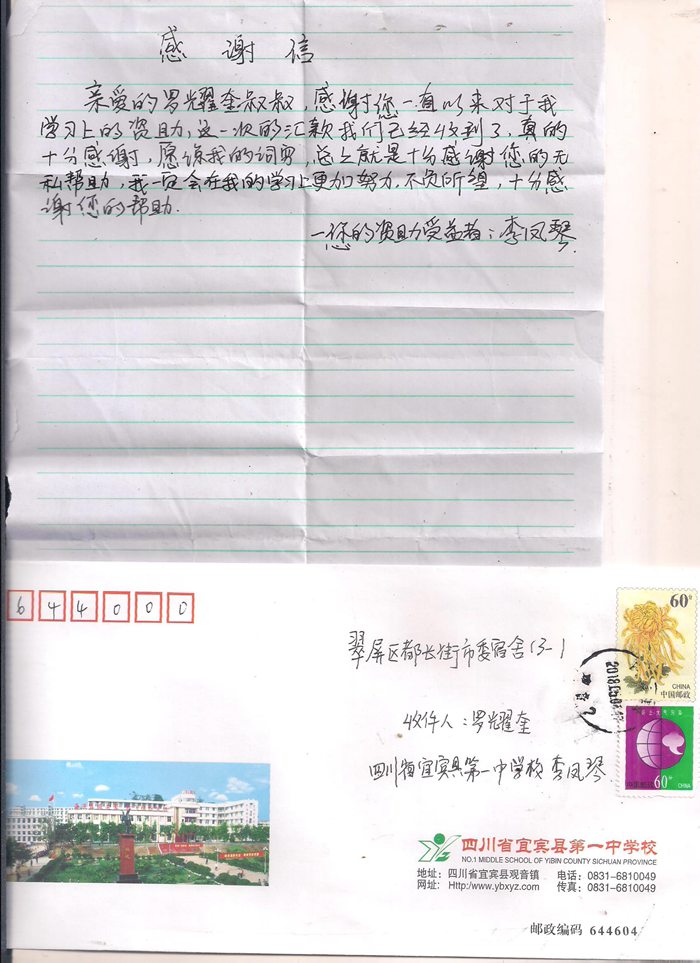 感谢信
亲爱的罗耀奎叔叔，感谢您一直以来对于我
学习上的资助，这一次的汇款我们已经收到了，真的
十分感谢，原谅我的词穷，总之就是十分感谢您的无
私帮助，我一定会在我的学习上更加努力，不负所望，十分感
谢您的帮助.
—您的资助受益者：李凤琴
644000
翠屏区都长街市委宿舍13-1
收件人：罗耀奎
四川省宜宾县第一中学校 李凤琴
60
CHINA
中国邮政
60
中国邮政 CHINA
四川省宜宾县第一中学校
NO.1 MIDDLE SCHOOL OF YIBIN COUNTY SICHUAN PROVINCE
地址：四川省宜宾县观音镇 电话：0831-6810049
网址：Http://www.ybxyz.com 传真：0831-6810049
邮政编码 644604